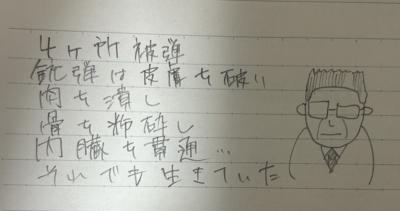 4ヶ所被弾
銃弾は皮膚を破い
肉を潰し
骨を粉砕し
内臓を貫通…
それでも生きていた